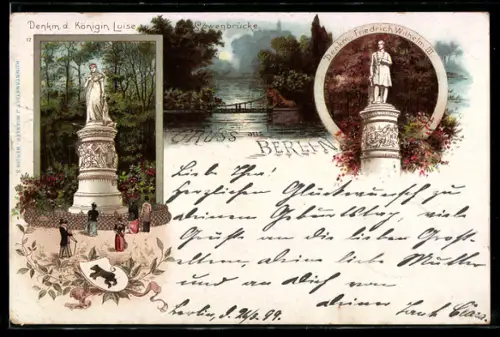 Denkm. d. Königin Luise
Löwenbrücke
Denkm. Friedrich Wilhelm III
17
Gruss aus
BERLIN
Liebe
herzlichen Glückwunsch zu
deinem Geburtstag, viele
Grüße an die lieben Groß-
eltern, deine liebe Mutter
und an dich von
deiner Tante Clara.
Berlin, d. 26/3. 99.